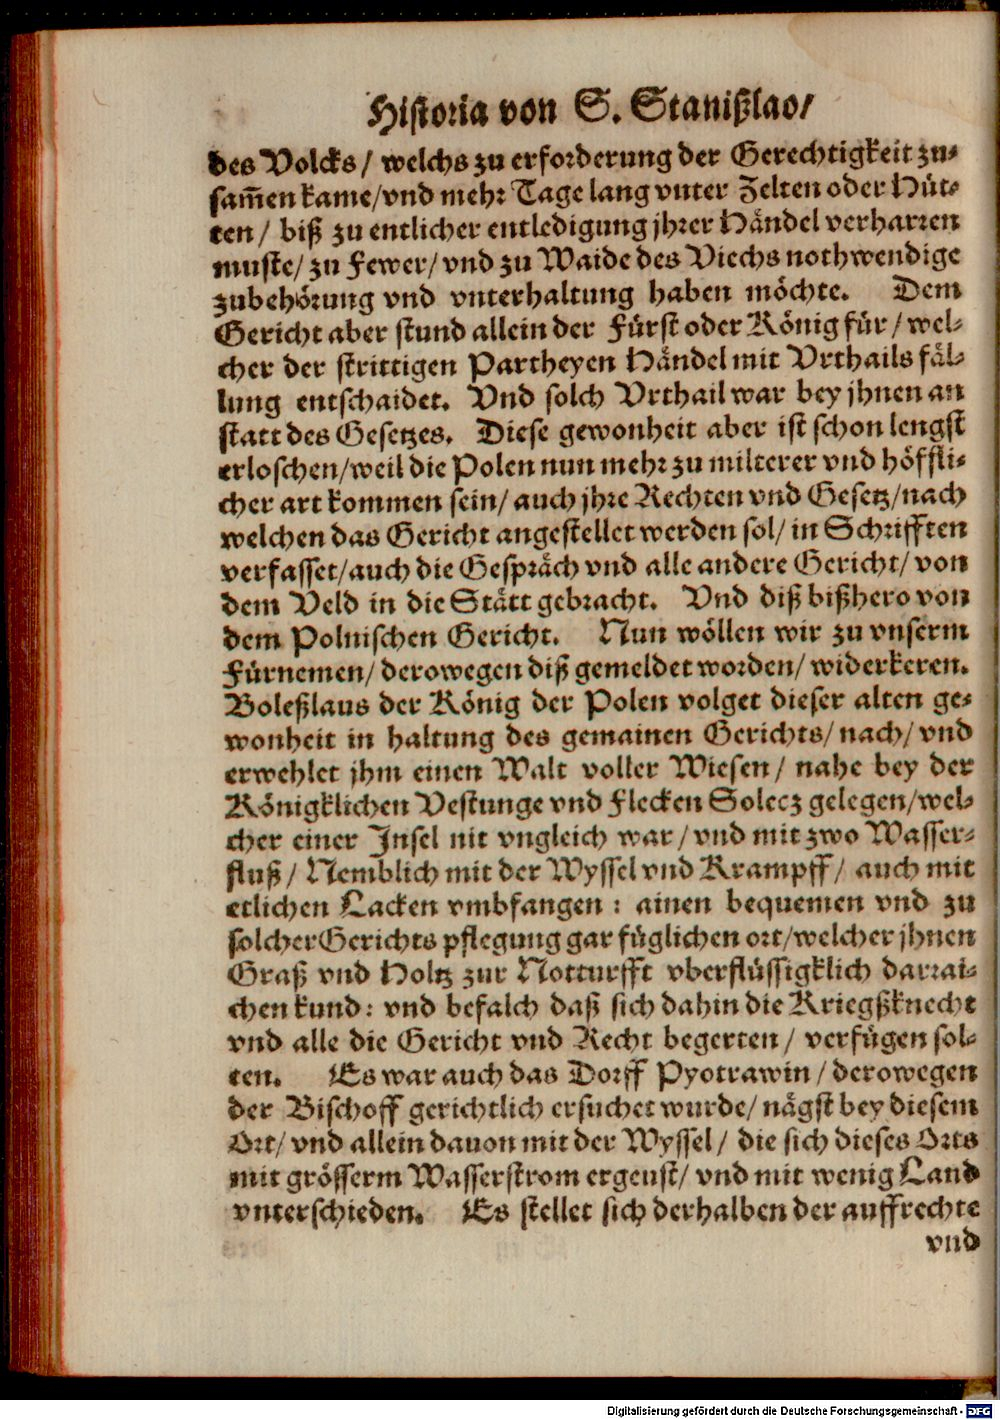 Historia von S. Stanißlao/
des Volcks/ welchs zu erforderung der Gerechtigkeit zu-
sam̄en kame/vnd mehr Tage lang vnter Zelten oder Hüt-
ten/ biß zu entlicher entledigung jhrer Händel verharren
muste/ zu Fewer/ vnd zu Waide des Viechs nothwendige
zubehörung vnd vnterhaltung haben möchte. Dem
Gericht aber stund allein der Fürst oder König für/ wel-
cher der strittigen Partheyen Händel mit Vrthails fäl-
lung entschaidet. Vnd solch Vrthail war bey jhnen an
statt des Gesetzes. Diese gewonheit aber ist schon lengst
erloschen/weil die Polen nun mehr zu milterer vnd höffli-
cher art kommen sein/ auch jhre Rechten vnd Gesetz/nach
welchen das Gericht angestellet werden sol/ in Schrifften
verfasset/auch die Gespräch vnd alle andere Gericht/ von
dem Veld in die Stätt gebracht. Vnd diß bißhero von
dem Polnischen Gericht. Nun wöllen wir zu vnserm
Fürnemen/ derowegen diß gemeldet worden/ widerkeren.
Boleßlaus der König der Polen volget dieser alten ge-
wonheit in haltung des gemainen Gerichts/ nach/ vnd
erwehlet jhm einen Walt voller Wiesen/ nahe bey der
Königklichen Vestunge vnd Flecken Solecz gelegen/wel-
cher einer Insel nit vngleich war/ vnd mit zwo Wasser-
fluß/ Nemblich mit der Wyssel vnd Krampff/ auch mit
etlichen Lacken vmbfangen: ainen bequemen vnd zu
solcher Gerichts pflegung gar füglichen ort/welcher jhnen
Graß vnd Holtz zur Notturfft vberflüssigklich darrai-
chen kund: vnd befalch daß sich dahin die Kriegßknecht
vnd alle die Gericht vnd Recht begerten/ verfügen sol-
ten. Es war auch das Dorff Pyotrawin/ derowegen
der Bischoff gerichtlich ersuchet wurde/ nägst bey diesem
Ort/ vnd allein dauon mit der Wyssel/ die sich dieses Orts
mit grösserm Wasserstrom ergeust/ vnd mit wenig Land
vnterschieden. Es stellet sich derhalben der auffrechte
vnd
Digitalisierung gefördert durch die Deutsche Forschungsgemeinschaft - DFG